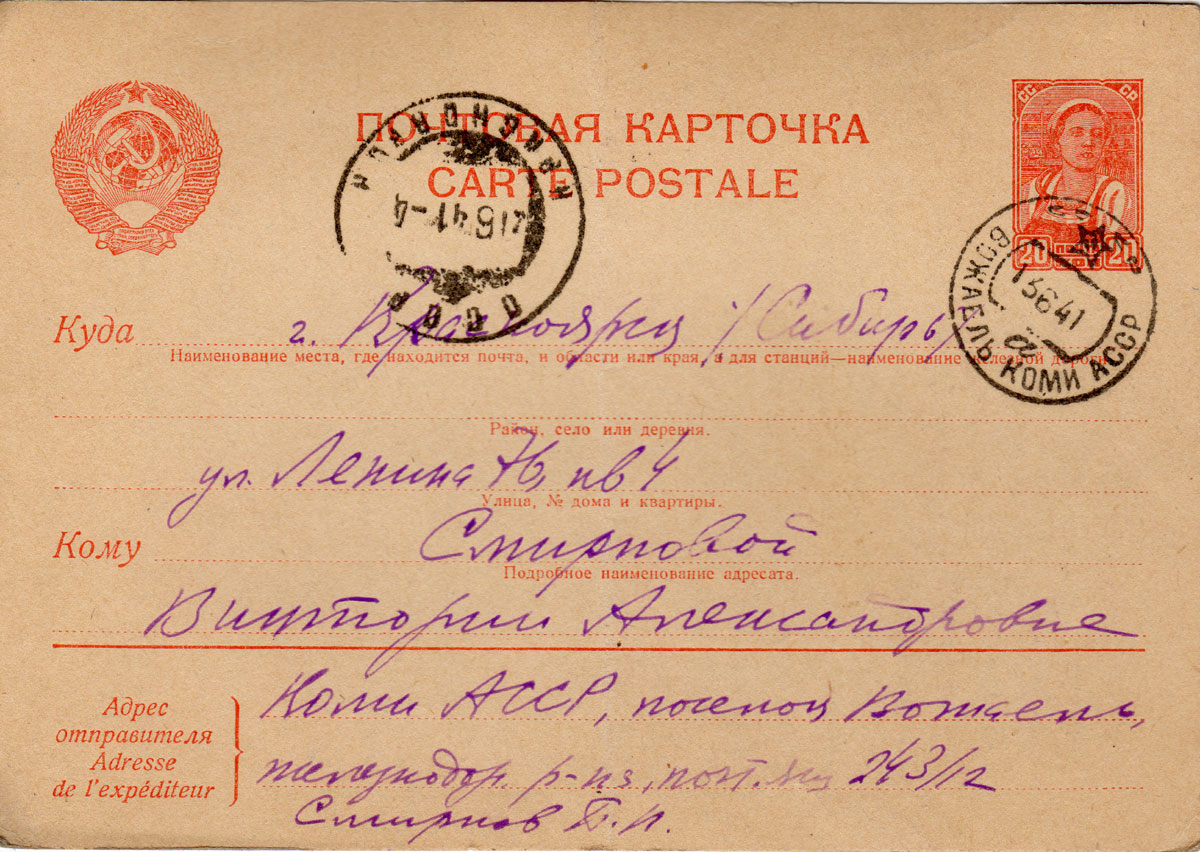 ПОЧТОВАЯ КАРТОЧКА
CARTE POSTALE
СС СР
20 20
КРАСНОЯРСК
21 6 41 - 4
СССР
СССР
13 6 41
ВОЖАЕЛЬ КОМИ АССР
Куда г. Красноярск /Сибирь/
Наименование места, где находится почта, и области или края, а для станций—наименование железной дороги
Район, село или деревня.
ул. Ленина 76, кв 4
Улица, № дома и квартиры.
Кому Смирновой
Подробное наименование адресата.
Виктории Александровне
Адрес отправителя
Adresse de l'expéditeur
Коми АССР, поселок Вожаель,
железнодор. р-на, почт. ящ 243/12
Смирнов П.